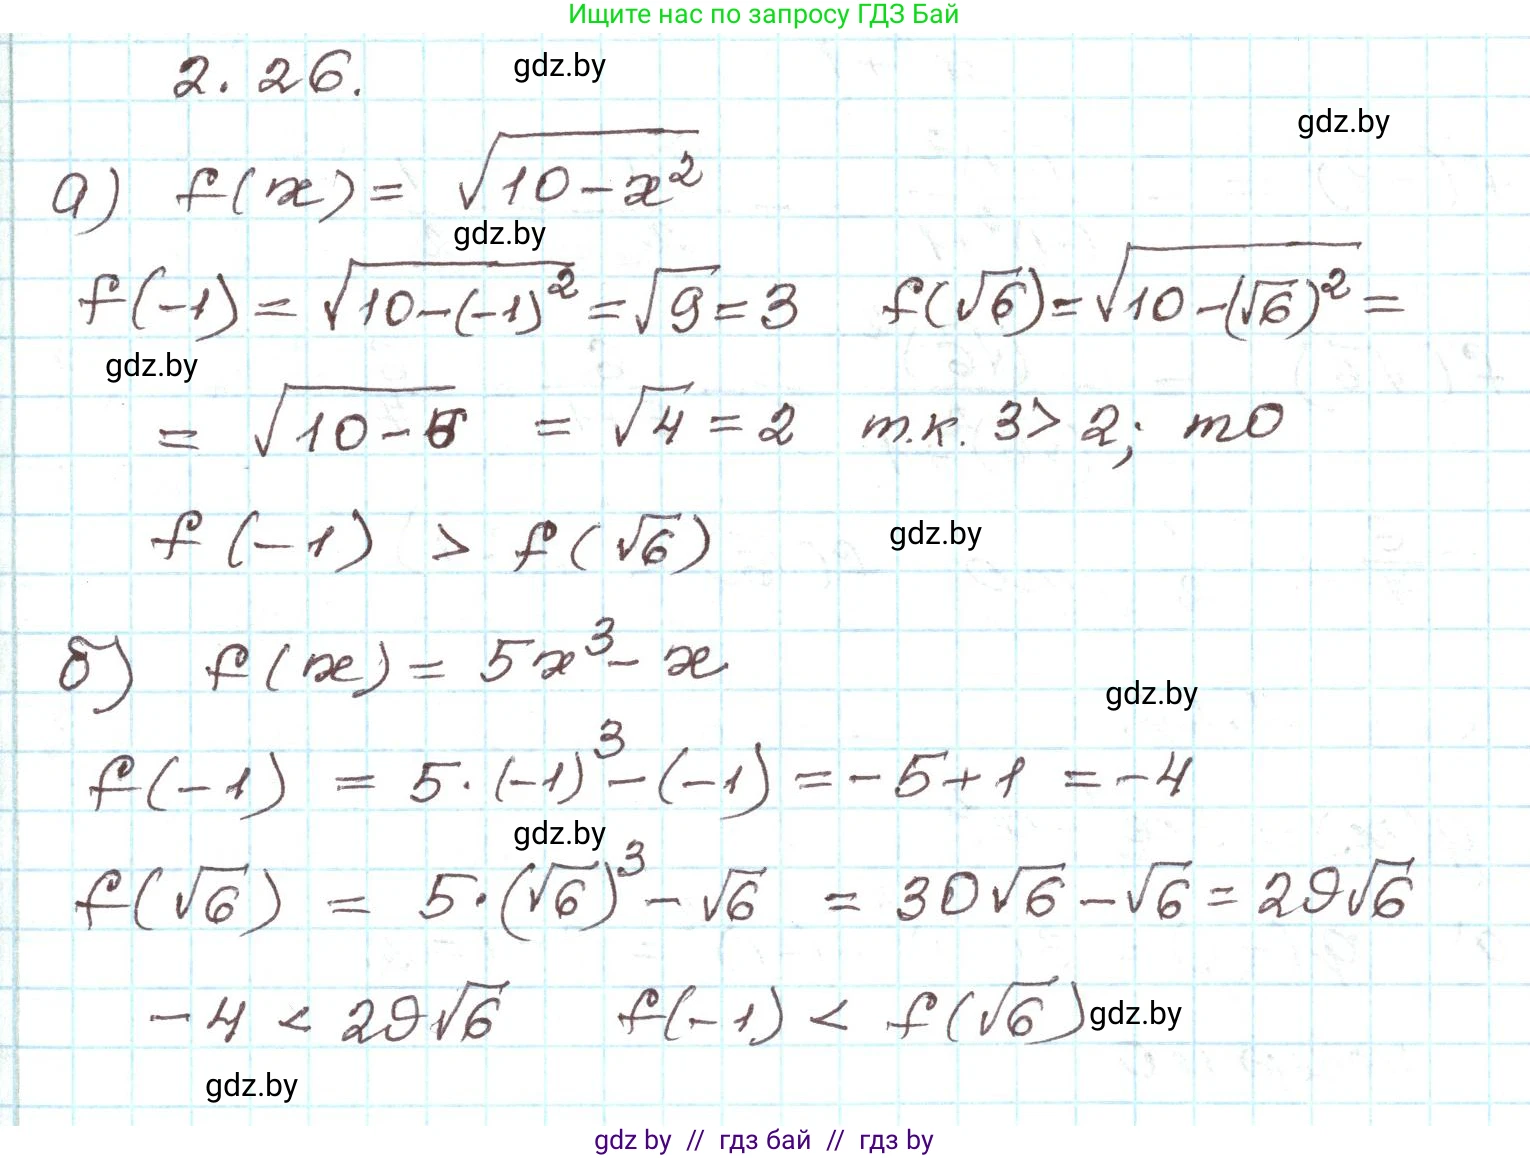 Ищите нас по запросу ГДЗ Бай
2.26. gdz.by
gdz.by
а) f(x) = √(10-x²)
gdz.by
f(-1) = √(10-(-1)²) = √9 = 3 f(√6) = √(10-(√6)²) =
gdz.by
= √(10-6) = √4 = 2 т.к. 3 > 2; то
f(-1) > f(√6) gdz.by
б) f(x) = 5x³ - x
gdz.by
f(-1) = 5·(-1)³-(-1) = -5+1 = -4
gdz.by
f(√6) = 5·(√6)³ - √6 = 30√6 - √6 = 29√6
-4 < 29√6 f(-1) < f(√6) gdz.by
gdz.by
gdz by // гдз бай // гдз by